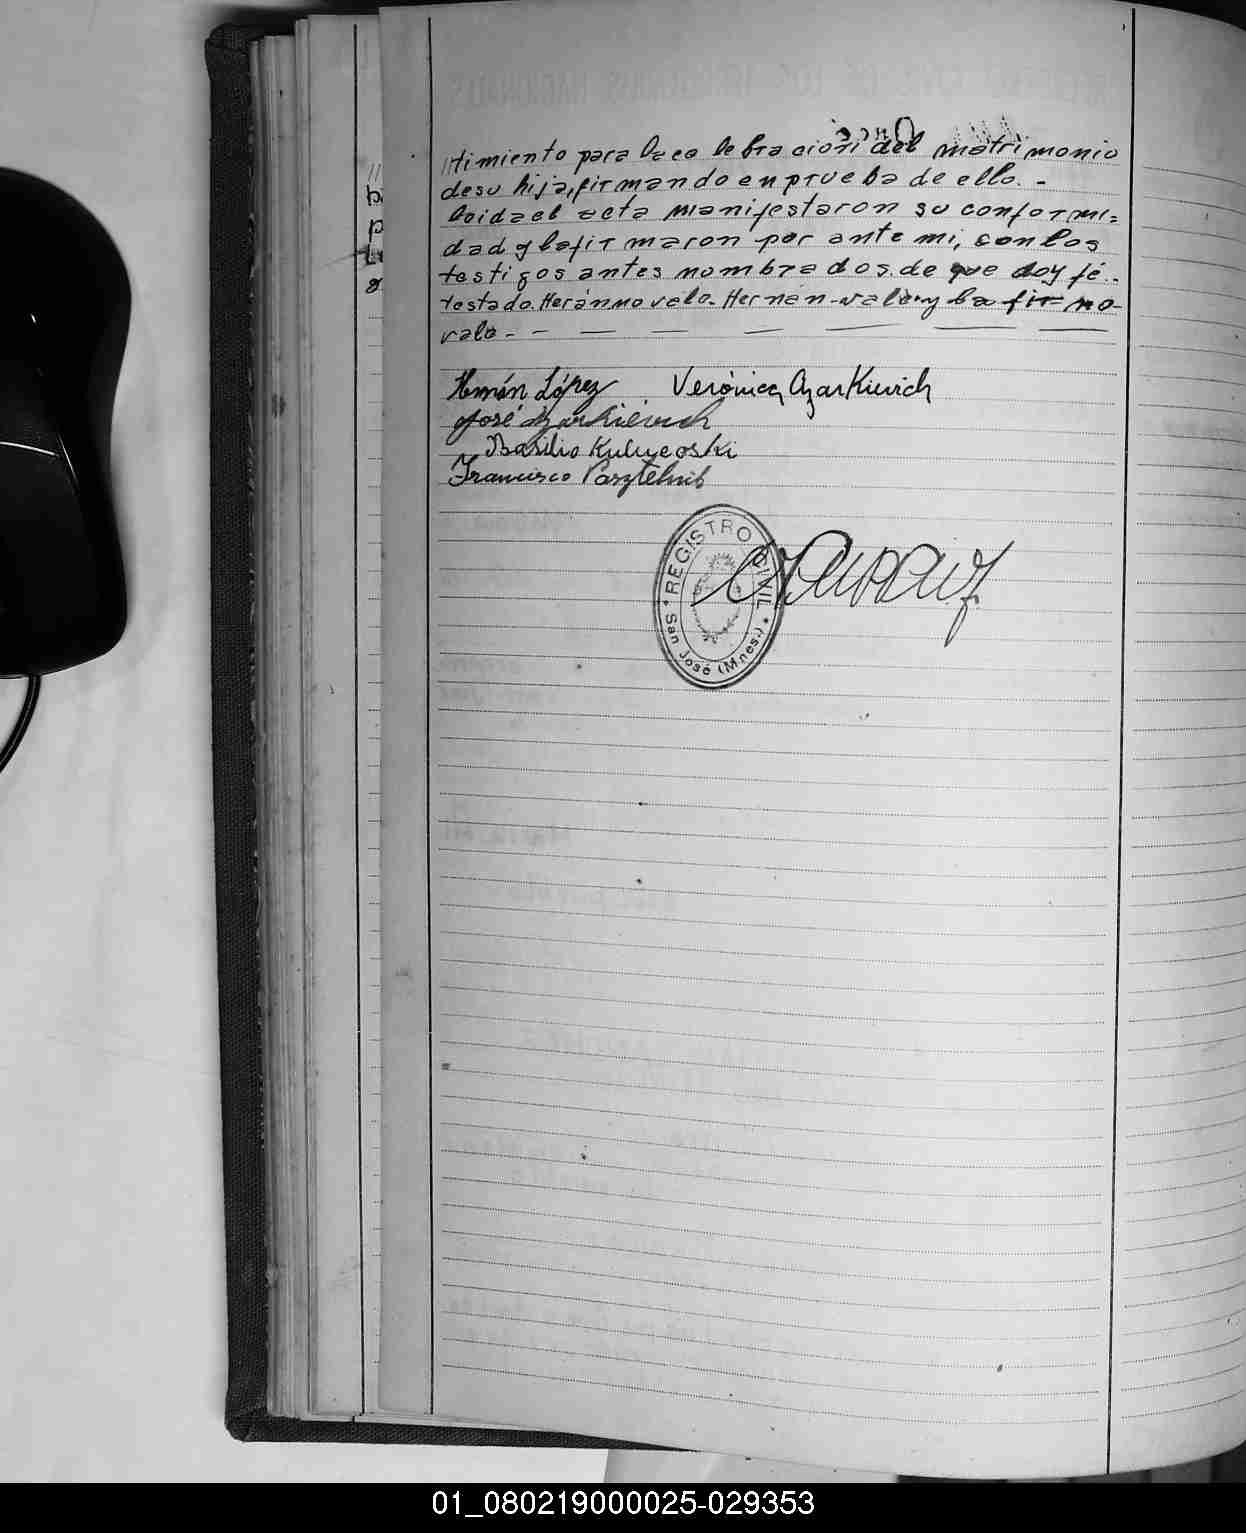 ntimiento para la celebracion del matrimonio
de su hija, firmando en prueba de ello. -
Leida el acta manifestaron su conformi=
dad y la firmaron por ante mi, con los
testigos antes nombrados. de que doy fé..
testado. Heránno vale. Hernán-vale. y la fir= no-
vale - - — — — — — —
Hernán López Verónica Azarkievich
José Azarkievich
Basilio
Francisco
REGISTRO CIVIL
San José (Mnes.)
01_080219000025-029353